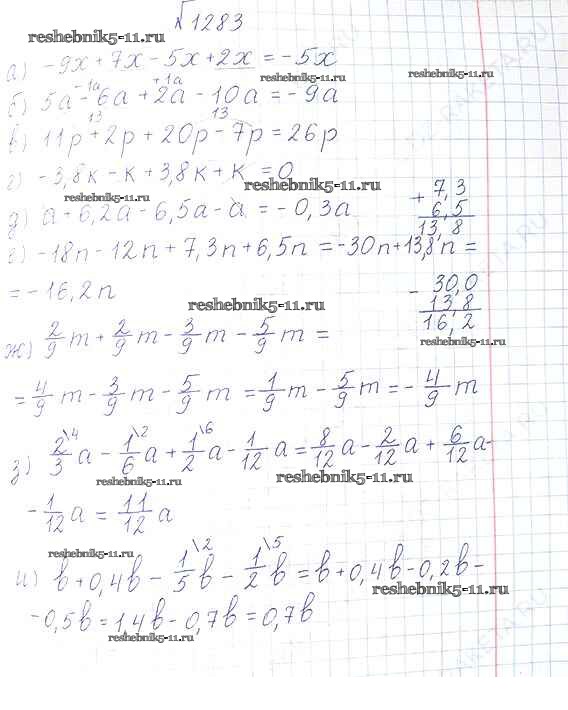 √1283
reshebnik5-11.ru
а) -9x + 7x - 5x + 2x = -5x
reshebnik5-11.ru
-1a +1a
б) 5a - 6a + 2a - 10a = -9a
13 13
в) 11p + 2p + 20p - 7p = 26p
г) -3,8к - к + 3,8к + к = 0
reshebnik5-11.ru
reshebnik5-11.ru
д) a - 6,2a - 6,5a - a = -0,3a
+ 7,3
6,5
13,8
е) -18n - 12n + 7,3n + 6,5n = -30n + 13,8n =
= -16,2n
- 30,0
13,8
16,2
reshebnik5-11.ru
reshebnik5-11.ru
ж) 2/9 m + 2/9 m - 3/9 m - 5/9 m =
= 4/9 m - 3/9 m - 5/9 m = 1/9 m - 5/9 m = - 4/9 m
з) 2/3\4 a - 1/6\2 a + 1/2\6 a - 1/12 a = 8/12 a - 2/12 a + 6/12 a -
reshebnik5-11.ru
reshebnik5-11.ru
- 1/12 a = 11/12 a
reshebnik5-11.ru
и) b + 0,4b - 1/5\2 b - 1/2\5 b = b + 0,4b - 0,2b -
reshebnik5-11.ru
- 0,5b = 1,4b - 0,7b = 0,7b
reshebnik5-11.ru